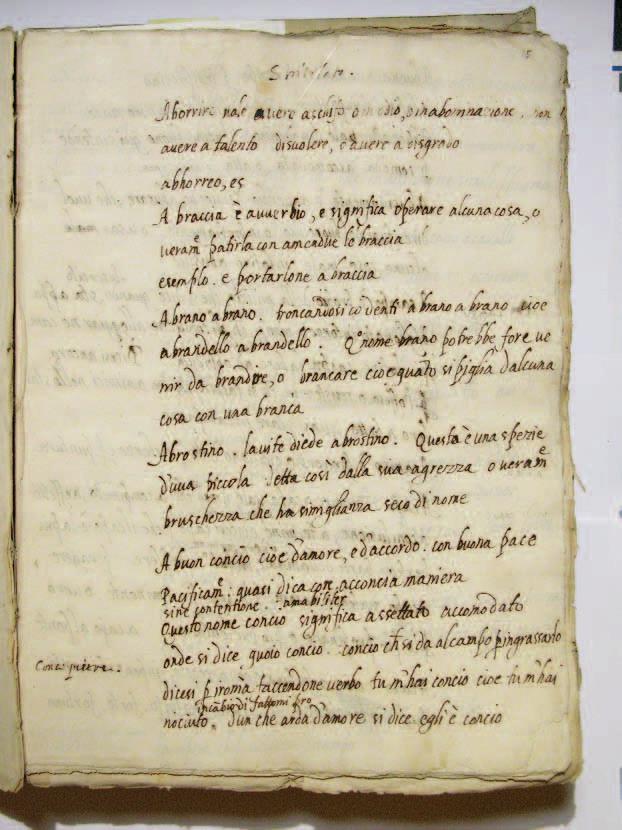 15
Aborrire vale avere a schifo o in odio, o in abominazione, non
avere a talento disvolere, e avere a disgrado
abhorreo, es
A braccia è avverbio, e significa operare alcuna cosa, o
veram.e patirla con amendue le braccia
esemplo. e portarlone a braccia
A brano a brano. troncandosi co denti a brano a brano cioe
a brandello a brandello. Q.o nome brano potrebbe fore ve
nir da brandire, o brancare cioe quãto si piglia d'alcuna
cosa con una branca
Abrostino. la vite diede abrostino. Questa è una spezie
d'uva piccola detta così dalla sua agrezza o veram.e
bruschezza che ha simiglianza seco di nome
A buon concio cioe d'amore, e d'accordo. con buona pace
Pacificam.e: quasi dica con acconcia maniera
sine contentione. amabiliter
Questo nome concio significa assettato accomodato
onde si dice quoio concio. concio ch̃ si da al campo p̃ ingrassarlo
dicesi p̃ ironia faccendone verbo tu m'hai concio cioe tu m'hai
incãbio di fattomi pro
nociuto. d'un che arda d'amore si dice egli è concio